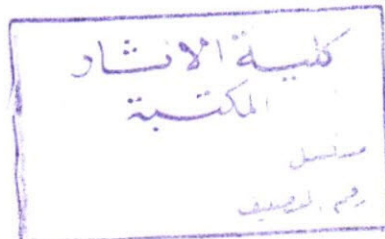 كلية الاقتصاد
المكتبة
مسلسل
رقم التصنيف